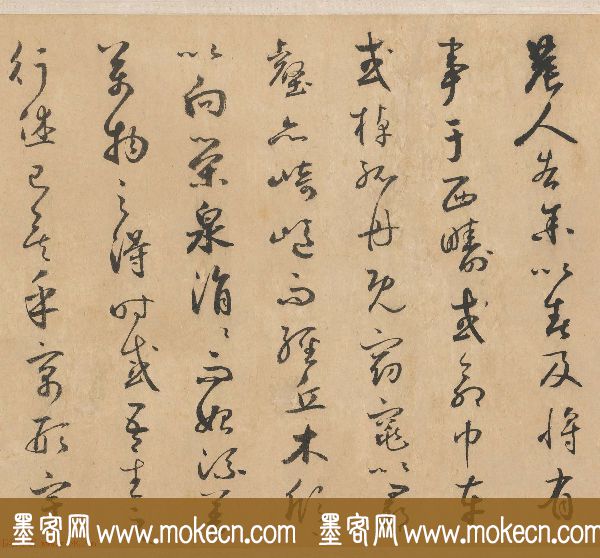 農人告余以春及將有
事于西疇或命巾車
或棹孤舟既窈窕以尋
壑亦崎嶇而經丘木欣〻
以向榮泉涓〻而始流羨
萬物之得時感吾生之
行休已矣乎寓形宇
墨客网 www.mokecn.com 墨客网 www.mokecn.com